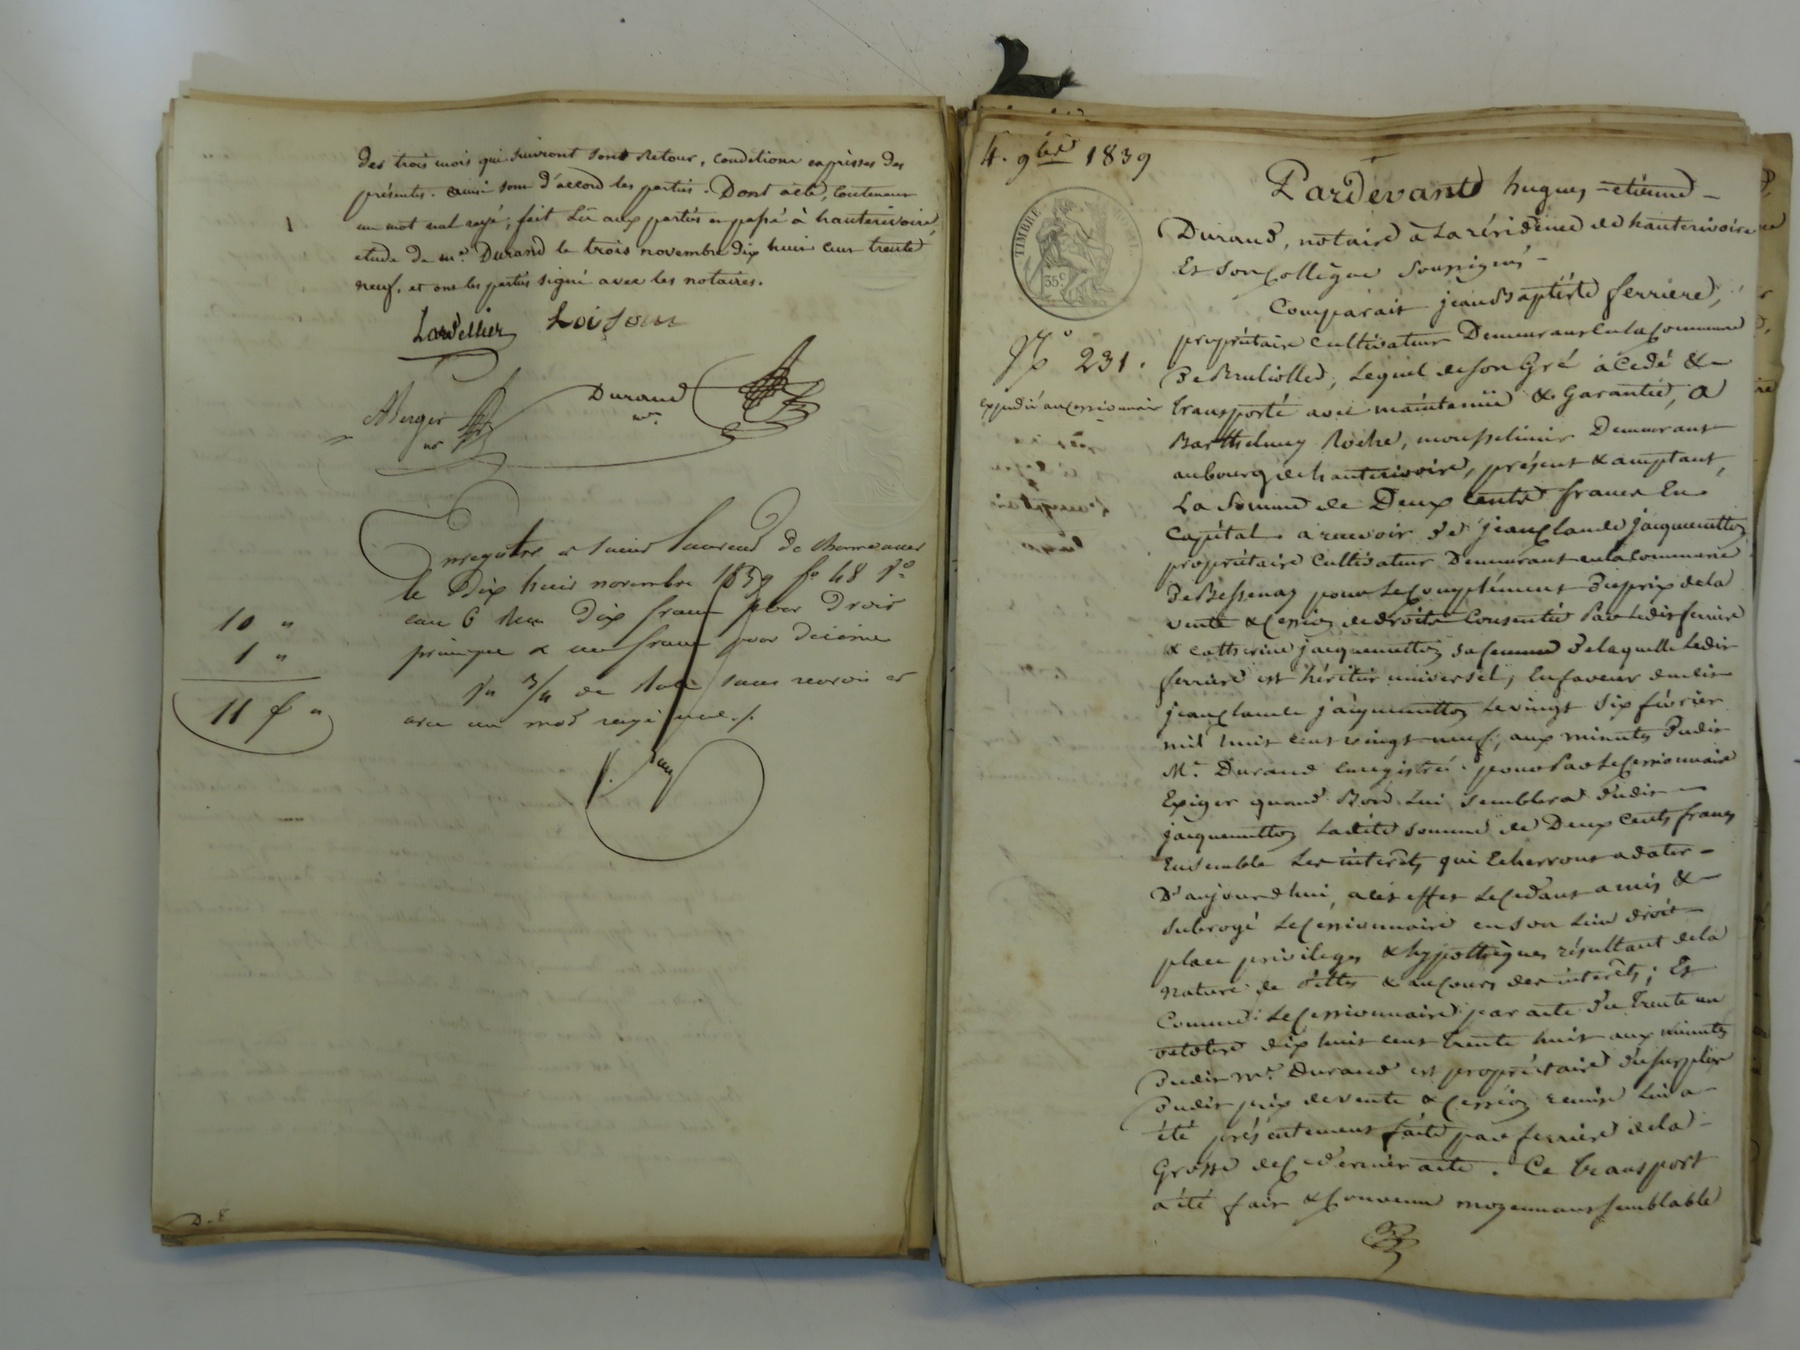 des trois mois qui suivront sont retour, conditions expresses des
présentes. ainsi sont d'accord les parties. Dont acte, contenant
un mot nul rayé, fait Lû aux parties en passé à hauterivoire,
1
etude de me. Durand le trois novembre dix huit cent trente
neuf, et ont les parties signé avec les notaires.
Lardellier Loison
ABerger nre Durand nre
Enregistré à Saint Laurent de chamousset
le Dix huit novembre 1839 fo 48 Vo
case 6 Reçu Dix francs pour Droit
10 "
principal & un franc pour décime
1 "
11 f "
avec un mot rayé nul ./.
D. 8
4. 9bre 1839
Pardevant hugues - etienne -
Durand, notaire à La résidence de hauterivoire
Et Son Collègue Soussignés -
TIMBRE ROYAL
35c
Comparait jean Baptiste ferriere,
propriétaire cultivateur Demeurant en la Commune
No 231.
De Brulliolles, Lequel de son Gré a Cedé & -
expédié au cessionnaire
transporté avec maintenüe & Garantie, a
Barthelemy Roche, mousselinier Demeurant
au bourg de hauterivoire, présent & acceptant,
La Somme de Deux Cents francs En
Capital à recevoir de jean Claude jacquemetton
propriétaire Cultivateur Demeurant en la Commune
De Bessenay pour Le Complément Du prix de la
vente & Cession de droits Consentie Par Ledit ferriere
& catherine jacquemetton sa femme De laquelle Ledit
ferriere est héritier universel, En faveur dudit
jean Claude jacquemetton Le vingt Six février
mil huit cent vingt neuf, aux minutes Dudit
Me. Durand Enregistré. pour Par Le Cessionnaire
Exiger quand Bon Lui Semblera dudit -
jacquemetton Ladite Somme de Deux Cents francs
Ensemble Les intérêts qui Echerront a dater -
D'aujourdhui, a cet effet Le Cedant a mis & -
Subrogé Le Cessionnaire en son Lieu droit -
place privileges & hypothèques résultant de la
nature de titres & au Cours des intérêts; Et
Comme Le Cessionnaire par acte du trente un
octobre dix huit cent trente huit aux minutes
Dudit me. Durand est propriétaire du surplus
Dudit prix de vente & Cession remise Lui a -
été présentement faite par ferriere de la -
Grosse de Ce dernier acte. Ce transport
a été fait & Convenu moyennant semblable